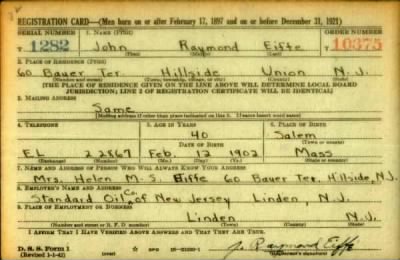 REGISTRATION CARD—(Men born on or after February 17, 1897 and on or before December 31, 1921)
SERIAL NUMBER 1. NAME (Print) ORDER NUMBER
T 1282 John Raymond Eiffe 10375
2. PLACE OF RESIDENCE (Print)
60 Bauer Ter. Hillside Union N.J.
(Number and street) (Town, township, village, or city) (County) (State)
[THE PLACE OF RESIDENCE GIVEN ON THE LINE ABOVE WILL DETERMINE LOCAL BOARD
JURISDICTION; LINE 2 OF REGISTRATION CERTIFICATE WILL BE IDENTICAL]
3. MAILING ADDRESS
Same
[Mailing address if other than place indicated on line 2. If same insert word same]
4. TELEPHONE 5. AGE IN YEARS 6. PLACE OF BIRTH
40 Salem
DATE OF BIRTH
EL 2 2867 Feb 12 1902 Mass
(Exchange) (Number) (Mo.) (Day) (Yr.) (State or country)
7. NAME AND ADDRESS OF PERSON WHO WILL ALWAYS KNOW YOUR ADDRESS
Mrs. Helen M. S. Eiffe 60 Bauer Ter. Hillside, N.J.
8. EMPLOYER'S NAME AND ADDRESS
Standard Oil Co. of New Jersey Linden, N.J.
9. PLACE OF EMPLOYMENT OR BUSINESS
Linden N.J.
(Number and street or R. F. D. number) (Town) (County) (State)
I AFFIRM THAT I HAVE VERIFIED ABOVE ANSWERS AND THAT THEY ARE TRUE.
D. S. S. Form 1
(Revised 1-1-42) (over) GPO J. Raymond Eiffe
(Registrant's signature)